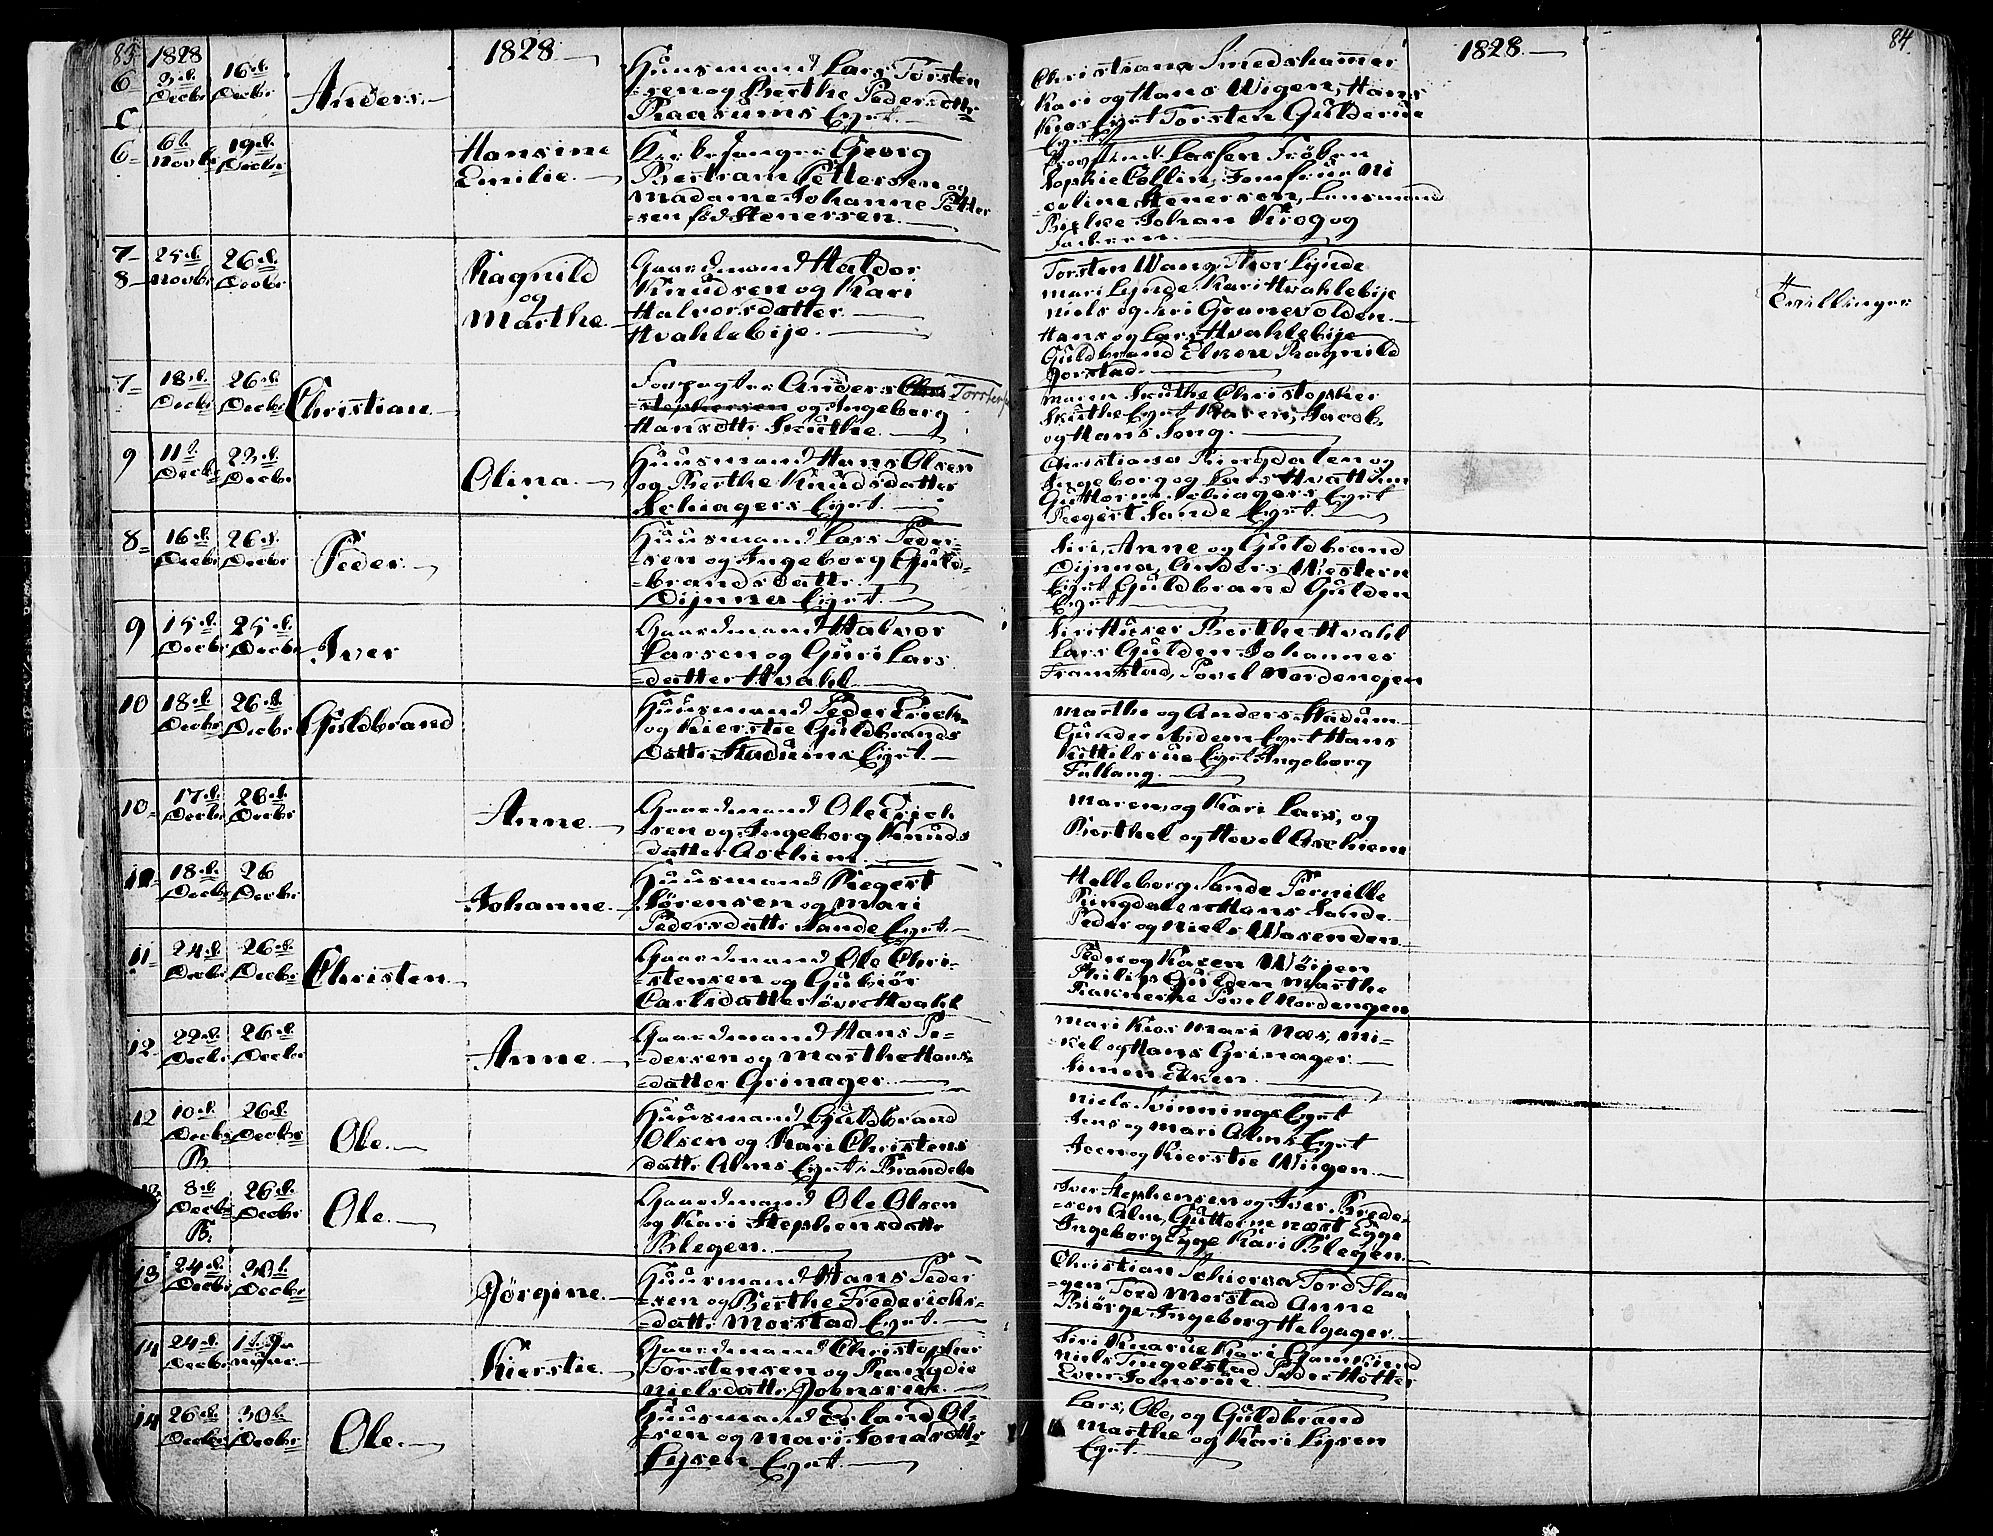 83 1828 1828 84
6 3d. Decbr 16d. Decbr Anders Huusmand Lars Torsten
=sen og Berthe Pedersdttr
Raasums Eyet.
Christiana Smedshamer
Kari og Hans Wigen, Hans
Kios Eyet Torsten Gulderue
Eyet
6 6t. Novbr 19d. Decbr Hansine
Emilie. Kirkesanger Georg
Bertram Pettersen og
Madame Johanne Petter
sen fød Stenersen.
Provstinde Lassen Frøken
Sophie Collin, Jomfrue Ni
coline Stenersen, Lensmand
Bielke Johan Krog og
7-
8- 25d. Novbr 26d. Decbr Ragnild
og
Marthe. Gaardmand Haldor
Knudsen og Kari
Halvorsdatter
Hvahlebije.
Torsten Wang, Thor Lynde
Mari Lynde, Kari Hvahlebije
Niels og Siri Granevolden
Hans og Lars Hvahlebije
Guldbrand Elken Ragnild
Jorstad.
Tvillinger
7 18d. Decbr 26d. Decbr Christian Forpagter Anders Chri Torstens
stophersen og Ingeborg
Hansdttr Skuthe.
Maren Skuthe Christopher
Skuthe Eyet Karen, Jacob,
og Hans Song.
9 11t. Decbr 23d. Decbr Olina. Huusmand Hans Olsen
og Berthe Knudsdatter
Schiagers Eyet.
Christiana Ringdalen og
Ingeborg og Lars Hvattum
Guttorm Schiagers Eyet
Regert Sande Eyet.
8 16d. Decbr 26d. Decbr Peder. Huusmand Lars Peder-
sen og Ingeborg Guld-
brandsdattr
Dijnna Eyet.
Siri, Anne og Guldbrand
Dijnna, Anders Western
Eyet Guldbrand Gulden
Eyet
9 15d. Decbr 25d. Decbr Iver Gaardmand Halvor
Larsen og Guri Lars
datter Hvahl
Siri Huser Berthe Hvahl
Lars Gulden Johannes
Framstad, Povel Nordengen
10 18d. Decbr 26d. Decbr Guldbrand Huusmand Peder Erich-
og Kierstie Guldbrands
Datter Stadums Eyet.
Marthe og Anders Stadum
Gunder Eyet Hans
Kittilsrue Eyet Ingeborg
Fallang.
10- 17d. Decbr 26d. Decbr Anne. Gaardmand Ole Erich
sen og Ingeborg Knuds
datter Aschim
Maren, og Kari Lars, og
Berthe og Hovel Aschiem
18d. Decbr 26 Decbr Johanne. Huusmand Regert
Sørensen og Mari
Pedersdattr Sande Eyet.
Helleborg Sande Pernille
Ringdalen Hans Sande
Peder og Niels Wasenden
11 24d. Decbr 26d. Decbr Christen Gaardmand Ole Chri-
stensen og Gubiør
Carlsdatter øvre Hvahl
Peder og Karen Wøijen
Philip Gulden Marthe
Raknerke Povel Nordengen
12 22d. Decbr 26d. Decbr Anne. Gaardmand Hans Pe-
dersen og Marthe Hans-
datter Grinager.
Mari Kios Mari Næs, Mi-
kel og Hans Grinager
Simen Elken.
12 10d. Decbr B. 26d. Decbr Ole. Huusmand Guldbrand
Olsen og Kari Christens
dattr Alms Eyet i Brandebu
Niels Svinnings Eyet
Jens og Mari Alms Eyet
og Kierstie Wiigen.
8d. Decbr B. 26d. Decbr Ole. Gaardmand Ole Olsen
og Kari Stephensdattr
Blegen.
Iver Stephensen og Iver Brede-
sen Alm, Guttorm næst Egge
Ingeborg Egge Kari Blegen.
13 24d. Decbr Decbr Jørgine. Huusmand Hans Peder
sen og Berthe Frederichs-
dattr Morstad Eyet.
Christian Schierva Tord Flaa
gen Tord Morstad Anne
Biørge Ingeborg Helgager.
14 24d. Decbr Kierstie. Gaardmand Christopher
Torstensen og Rangdie
Nielsdattr Johnsrue.
Siri Knarue Kari Gamkind
Niels Ingelstad Peder Hotter
Even Jonsrue.
14 26d. Decbr 30t. Decbr Ole. Huusmand Erland Ol-
sen og Mari Jonasdttr
Lysen Eyet.
Lars, Ole, og Guldbrand
Marthe og Kari Lysen
Eyet.